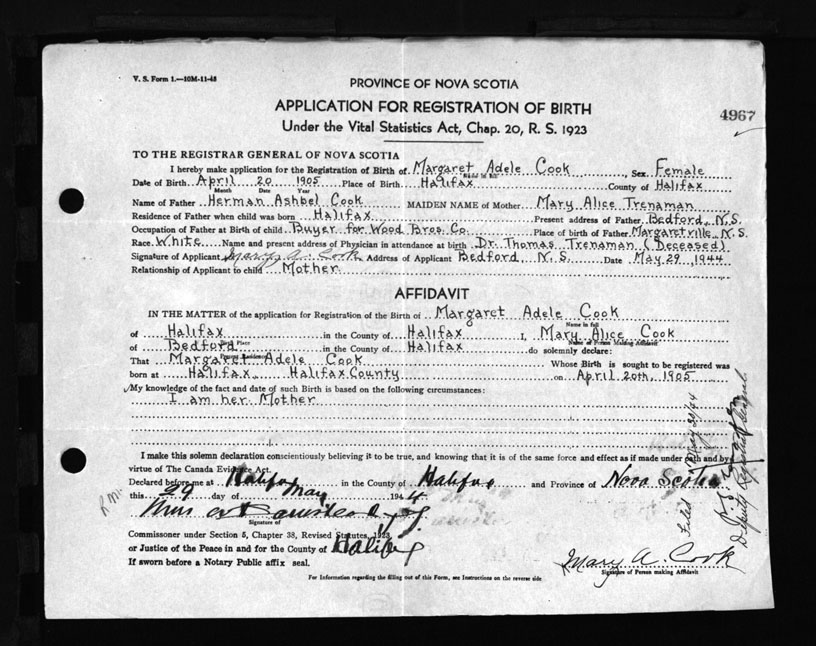 V. S. Form 1.—10M-11-43
PROVINCE OF NOVA SCOTIA
APPLICATION FOR REGISTRATION OF BIRTH
4967
Under the Vital Statistics Act, Chap. 20, R. S. 1923
TO THE REGISTRAR GENERAL OF NOVA SCOTIA
I hereby make application for the Registration of Birth of Margaret Adele Cook, Sex Female
Name in full
Date of Birth April 20 1905 Place of Birth Halifax County of Halifax
Month Date Year
Name of Father Herman Ashbel Cook MAIDEN NAME of Mother Mary Alice Trenaman
Residence of Father when child was born Halifax Present address of Father Bedford, N.S.
Occupation of Father at Birth of child Buyer for Wood Bros. Co. Place of birth of Father Margaretville, N.S.
Race White Name and present address of Physician in attendance at birth Dr. Thomas Trenaman (Deceased)
Signature of Applicant Mary A. Cook Address of Applicant Bedford, N.S. Date May 29, 1944
Relationship of Applicant to child Mother
AFFIDAVIT
IN THE MATTER of the application for Registration of the Birth of Margaret Adele Cook
Name in full
of Halifax in the County of Halifax I, Mary Alice Cook
Birth Place Name of Person Making Affidavit
of Bedford in the County of Halifax do solemnly declare:
Present Residence
That Margaret Adele Cook Whose Birth is sought to be registered was
born at Halifax, Halifax County on April 20th, 1905
My knowledge of the fact and date of such Birth is based on the following circumstances:
I am her Mother
I make this solemn declaration conscientiously believing it to be true, and knowing that it is of the same force and effect as if made under oath and by
virtue of The Canada Evidence Act.
Declared before me at Halifax in the County of Halifax and Province of Nova Scotia
this 29 day of May 1944
Signature of
Commissioner under Section 5, Chapter 38, Revised Statutes, 1923,
or Justice of the Peace in and for the County of Halifax
If sworn before a Notary Public affix seal.
Mary A. Cook
Signature of Person making Affidavit
For Information regarding the filling out of this Form, see Instructions on the reverse side.
Filed May
Deputy Registrar General